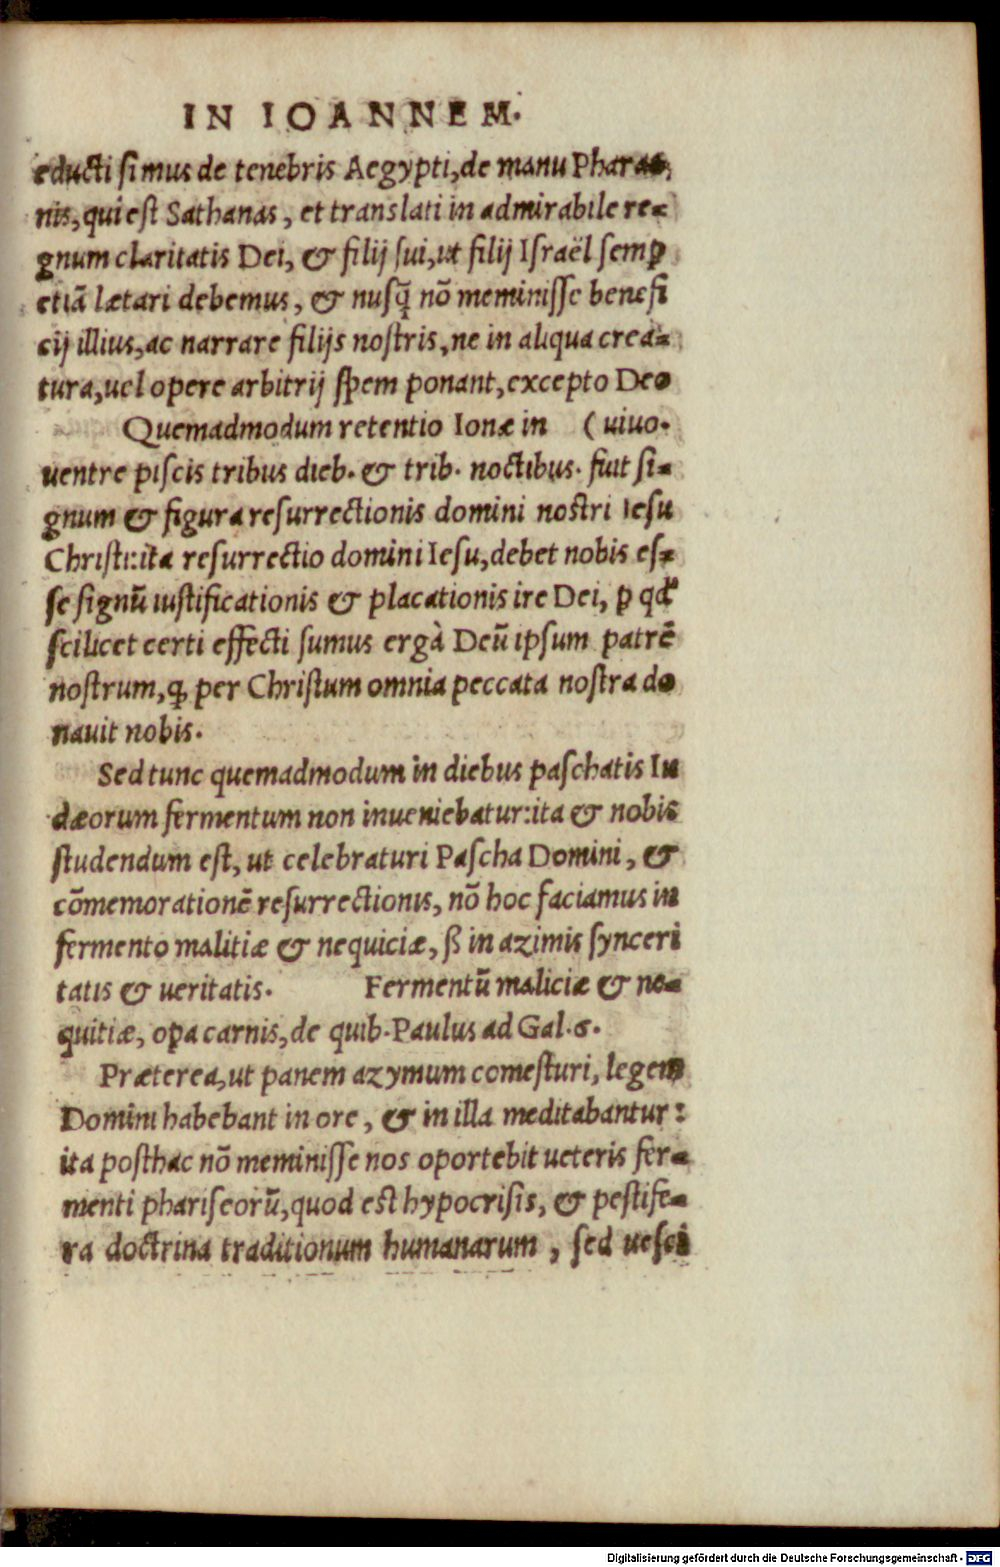 IN IOANNEM.
educti simus de tenebris Aegypti, de manu Pharao-
nis, qui est Sathanas, et translati in admirabile re-
gnum claritatis Dei, & filij sui, ut filij Israël semꝑ
etiã lætari debemus, & nusꝗ̃ nõ meminisse benefi
cij illius, ac narrare filijs nostris, ne in aliqua crea-
tura, uel opere arbitrij spem ponant, excepto Deo
Quemadmodum retentio Ionæ in (uiuo.
uentre piscis tribus dieb. & trib. noctibus. fuit si-
gnum & figura resurrectionis domini nostri Iesu
Christi: ita resurrectio domini Iesu, debet nobis es-
se signũ iustificationis & placationis ire Dei, ꝑ qđ
scilicet certi effecti sumus ergà Deũ ipsum patrẽ
nostrum, ꝙ per Christum omnia peccata nostra do
nauit nobis.
Sed tunc quemadmodum in diebus paschatis Iu
dæorum fermentum non inueniebatur: ita & nobis
studendum est, ut celebraturi Pascha Domini, &
cõmemorationẽ resurrectionis, nõ hoc faciamus in
fermento malitiæ & nequiciæ, ß in azimis synceri
tatis & ueritatis. Fermentũ maliciæ & ne-
quitiæ, oꝑa carnis, de quib. Paulus ad Gal. 5.
Præterea, ut panem azymum comesturi, legem
Domini habebant in ore, & in illa meditabantur:
ita posthac nõ meminisse nos oportebit ueteris fer-
menti phariseorũ, quod est hypocrisis, & pestife-
ra doctrina traditionum humanarum, sed uesci
Digitalisierung gefördert durch die Deutsche Forschungsgemeinschaft - DFG